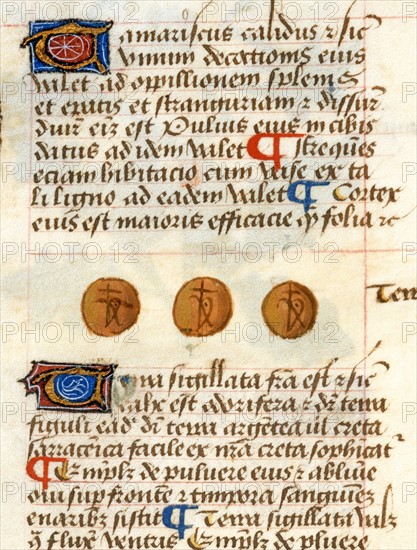 Tamariscus calidus ⁊ sic̄
Uinum decoctionis eius
Valet ad oppillionem splenis
et epatis et stranguriam ⁊ dissur̄
Puluis eius in cibis
datus ad idem valet ¶
eciam bibitacio cum vase ex ta
li ligno ad eadem valet ¶ Cortex
eius est maioris efficacie q̄ folia ⁊c
Terr
Terra sigillata fr̄a est ⁊ sic̄
valx est aprifera ⁊ dr̄ terra
figuli ead' dr̄ terra argetea ul creta
sarracenica facile ex nr̄a creta sophicat'
¶ de puluere eius ⁊ albuīe
oui sup fronte ⁊ timpora sanguinez
enaribz sistit ¶ Terra sigillata
q̄ fluxū ventris ¶ de puluere